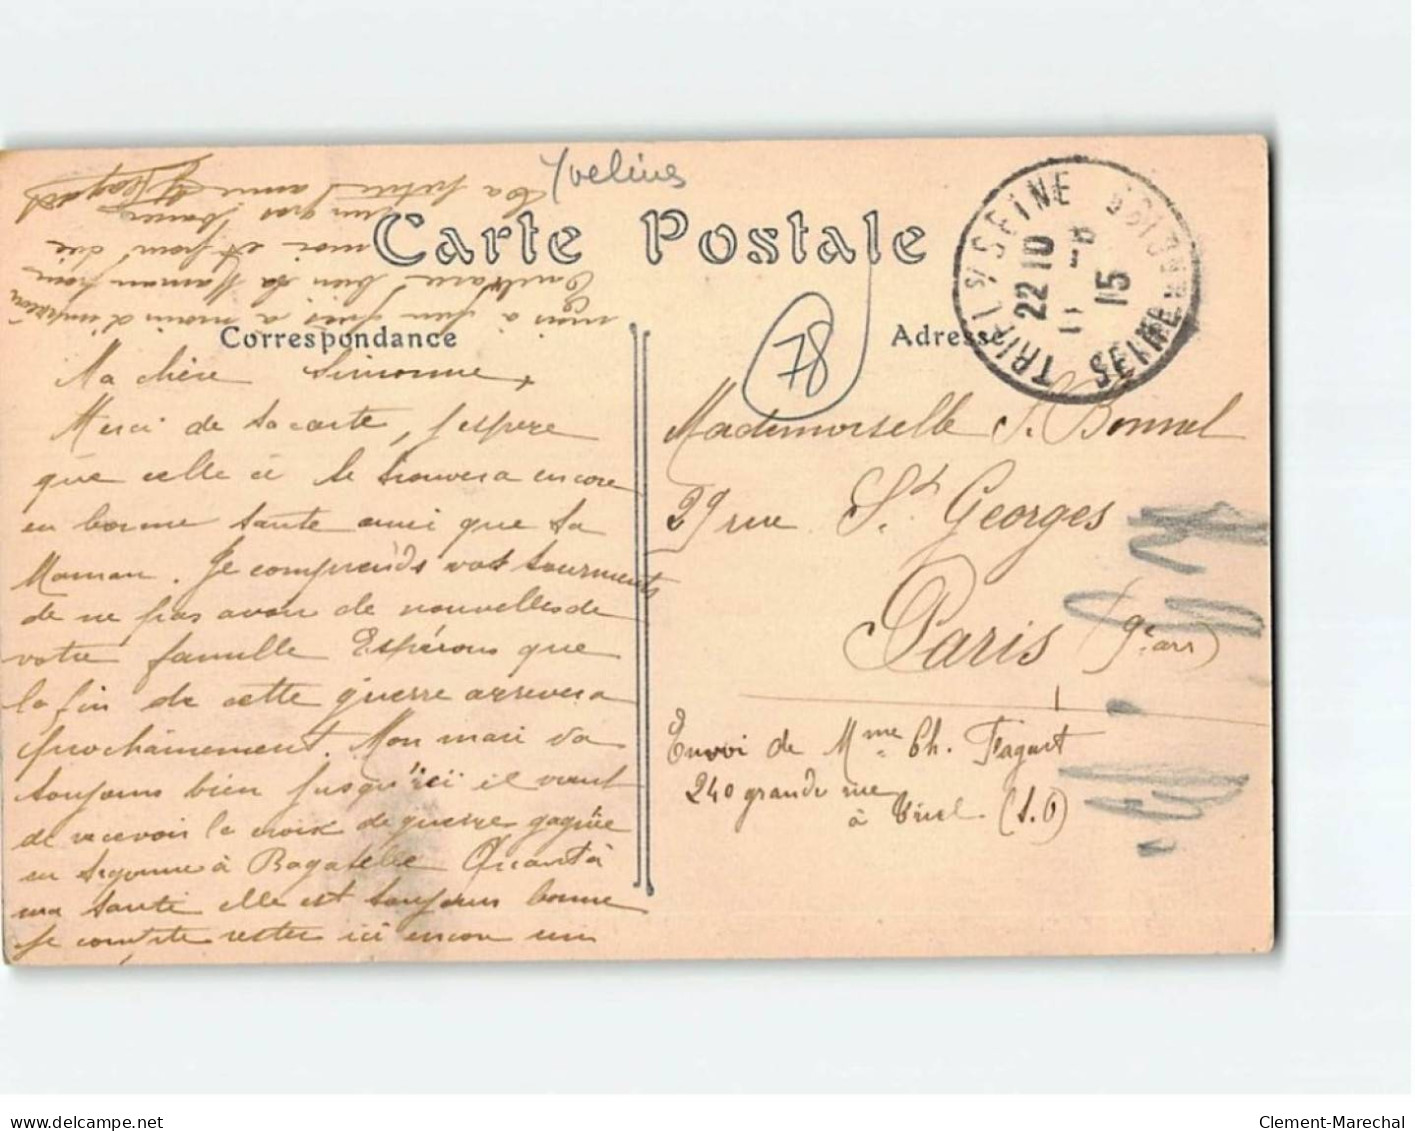 Yvelines
Carte Postale
78
Correspondance
Adresse
TRIEL S/ SEINE
22 10
15
SEINE
Ma chère Simonne
Merci de ta carte, j'espere
que celle ci te trouvera encore
en bonne sante ainsi que ta
Maman. Je comprends vos tourments
de ne pas avoir de nouvelles de
votre famille Espérons que
la fin de cette guerre arrivera
prochainement. Mon mari va
toujours bien jusqu'ici il vient
de recevoir la croix de guerre gagnée
en Argonne à Bagatelle Quant à
ma santé elle est toujours bonne
Je compte rester ici encore un
mois à peu près à moins d'imprévu
Embrasse bien ta Maman pour
moi et pour toi
un gros baiser
Ta petite amie
Mademoiselle S. Bonnel
29 rue St Georges
Paris (9e arr)
Envoi de Mme Ch. Flagart
240 grande rue
à Triel (S.O)
delcampe.net
Clement-Marechal